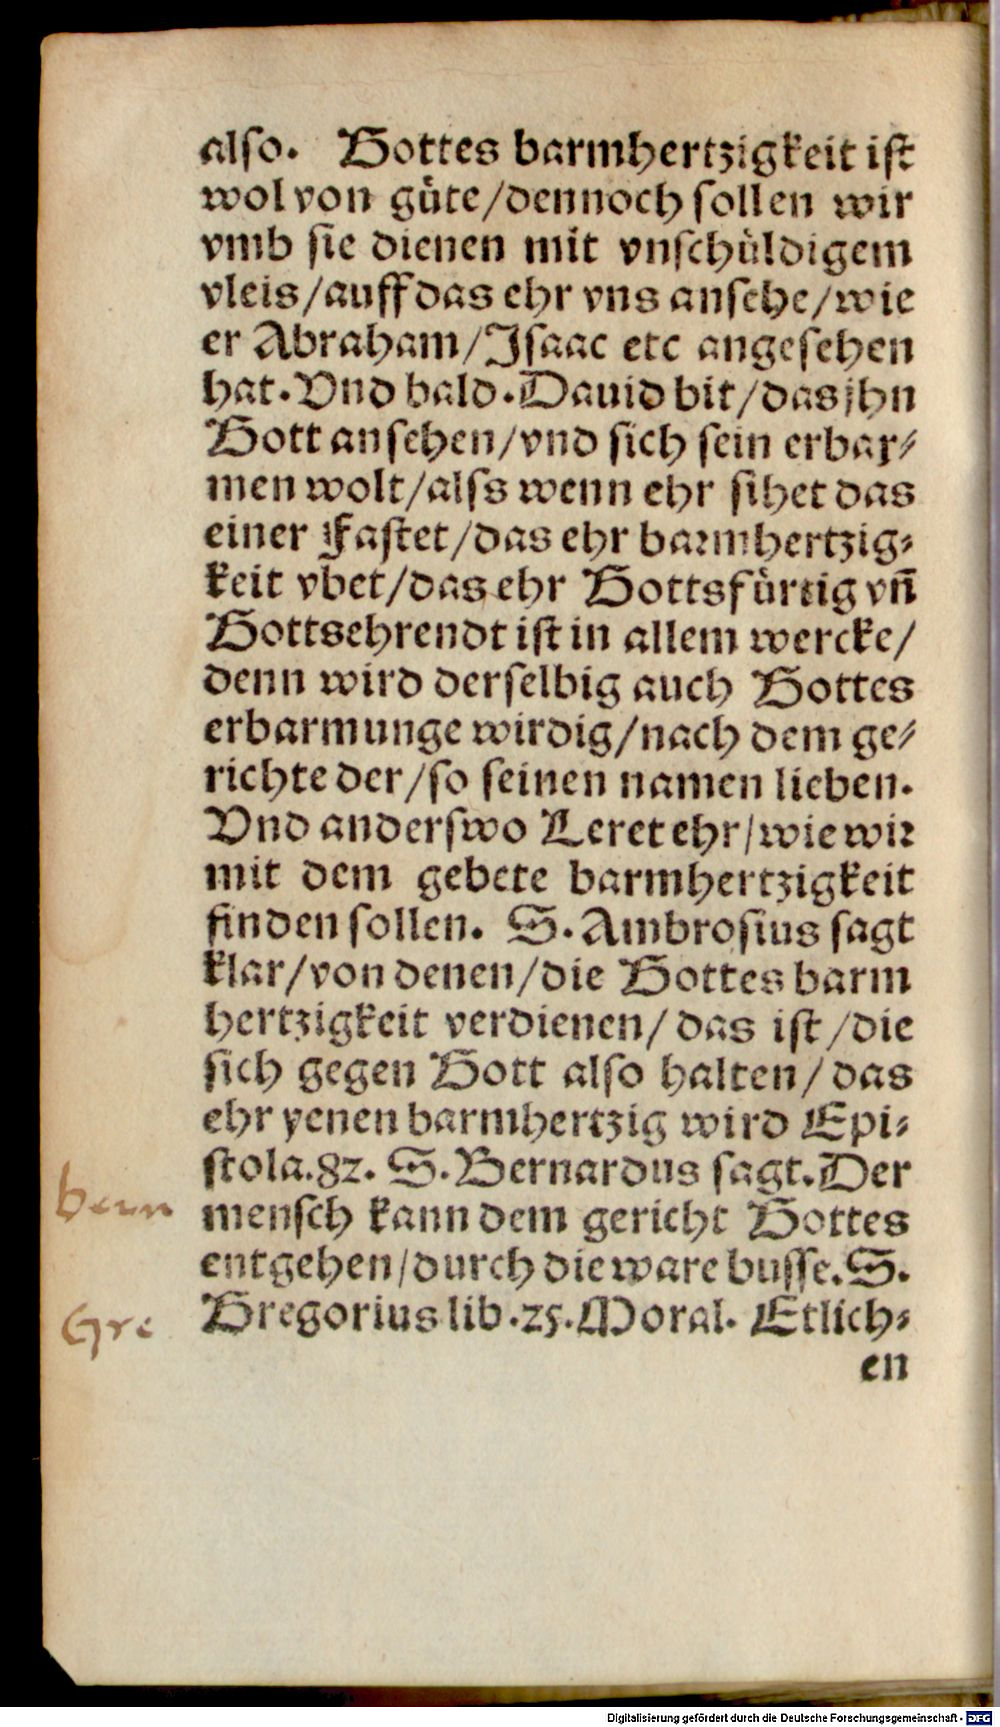 also. Gottes barmhertzigkeit ist
wol von güte/dennoch sollen wir
vmb sie dienen mit vnschüldigem
vleis/auff das ehr vns ansehe/wie
er Abraham/Isaac etc angesehen
hat. Vnd bald. Dauid bit/das jhn
Gott ansehen/vnd sich sein erbar⸗
men wolt/alss wenn ehr sihet das
einer Fastet/das ehr barmhertzig⸗
keit vbet/das ehr Gottsfürtig vn̄
Gottsehrendt ist in allem wercke/
denn wird derselbig auch Gottes
erbarmunge wirdig/nach dem ge⸗
richte der/so seinen namen lieben.
Vnd anderswo Leret ehr/wie wir
mit dem gebete barmhertzigkeit
finden sollen. S. Ambrosius sagt
klar/von denen/die Gottes barm
hertzigkeit verdienen/das ist/die
sich gegen Gott also halten/das
ehr yenen barmhertzig wird Epi⸗
stola.82. S. Bernardus sagt. Der
mensch kann dem gericht Gottes
entgehen/durch die ware busse. S.
Gregorius lib.25. Moral. Etlich⸗
en
bern
Gre
Digitalisierung gefördert durch die Deutsche Forschungsgemeinschaft - DFG